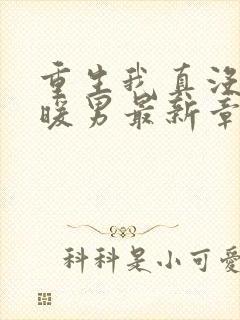 重生我真没
暖男最新章
科科是小可爱